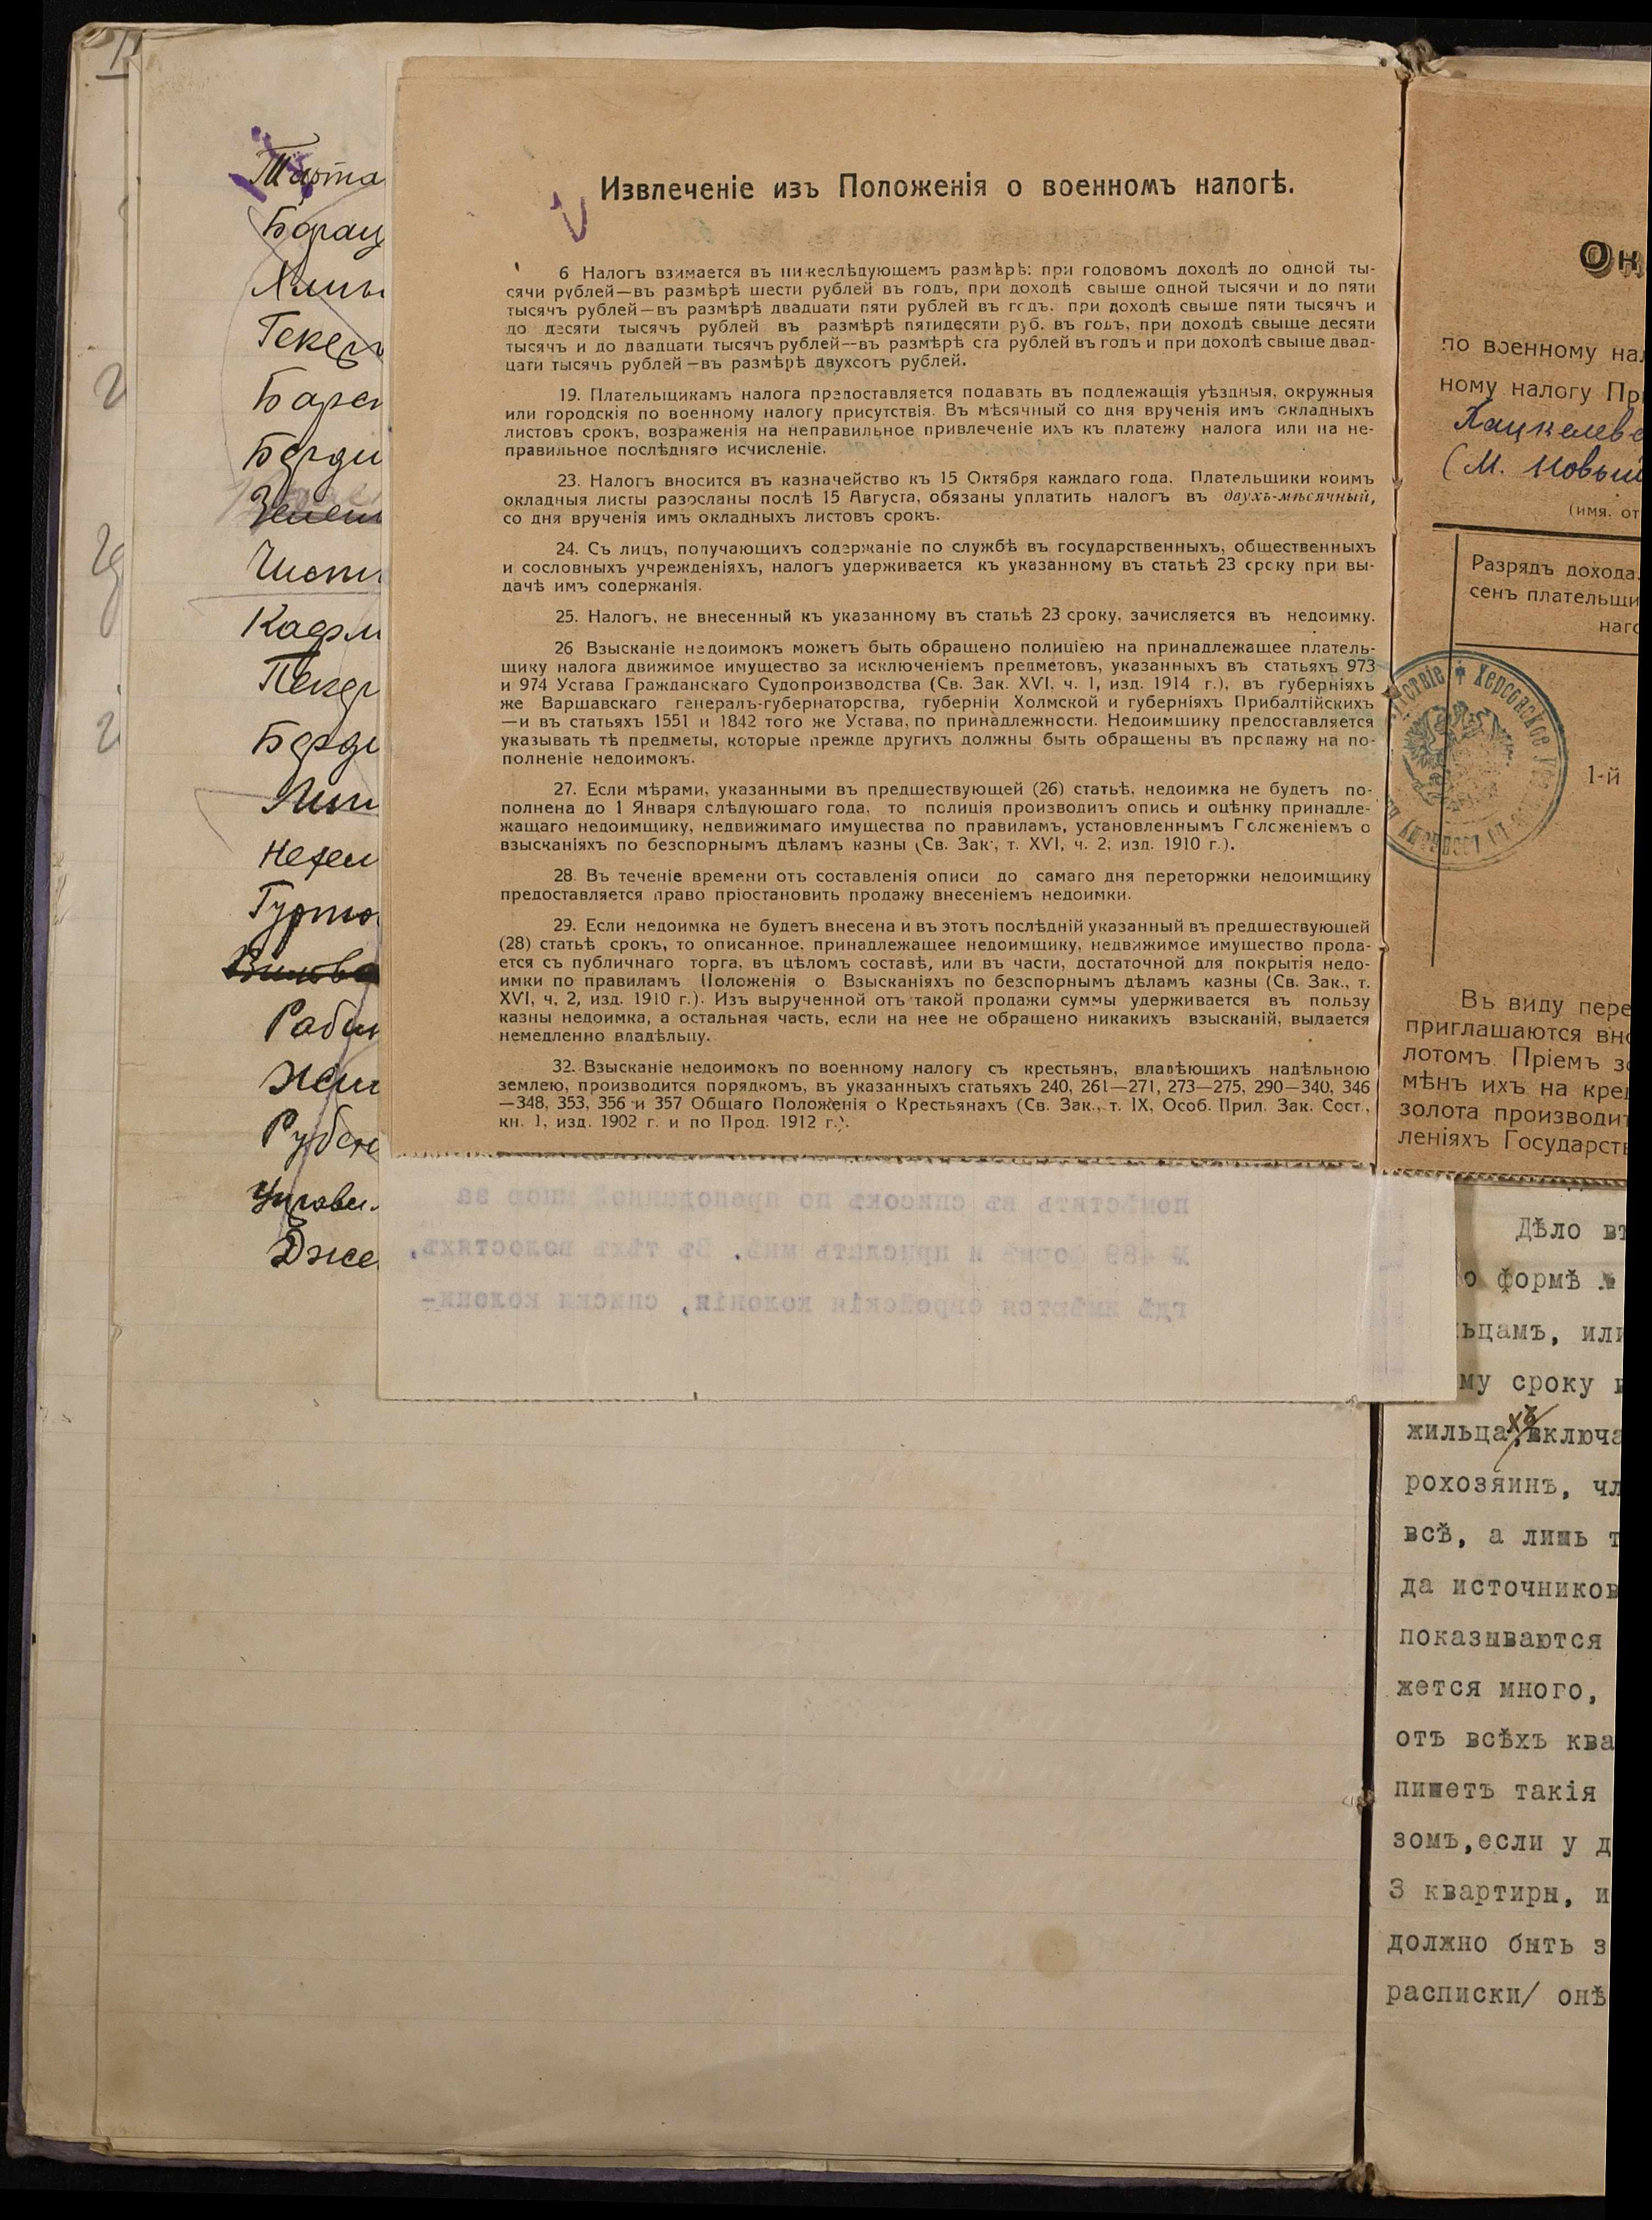 Борац
Текер
Барсі
Берди
Зелен
Чисти
Кафм
Пекер
Берди
Нехем
Гурто
Рабин
Рубен
Управи.
Дже
Извлеченіе изъ Положенія о военномъ налогѣ.
6 Налогъ взимается въ нижеслѣдующемъ размѣрѣ: при годовомъ доходѣ до одной ты-
сячи рублей—въ размѣрѣ шести рублей въ годъ, при доходѣ свыше одной тысячи и до пяти
тысячъ рублей—въ размѣрѣ двадцати пяти рублей въ годъ. при доходѣ свыше пяти тысячъ и
до десяти тысячъ рублей въ размѣрѣ пятидесяти руб. въ годъ, при доходѣ свыше десяти
тысячъ и до двадцати тысячъ рублей—въ размѣрѣ ста рублей въ годъ и при доходѣ свыше двад-
цати тысячъ рублей—въ размѣрѣ двухсотъ рублей.
19. Плательщикамъ налога предоставляется подавать въ подлежащія уѣздныя, окружныя
или городскія по военному налогу присутствія. Въ мѣсячный со дня врученія имъ окладныхъ
листовъ срокъ, возраженія на неправильное привлеченіе ихъ къ платежу налога или на не-
правильное послѣдняго исчисленіе.
23. Налогъ вносится въ казначейство къ 15 Октября каждаго года. Плательщики коимъ
окладныя листы разосланы послѣ 15 Августа, обязаны уплатить налогъ въ двухъ-мѣсячный,
со дня врученія имъ окладныхъ листовъ срокъ.
24. Съ лицъ, получающихъ содержаніе по службѣ въ государственныхъ, общественныхъ
и сословныхъ учрежденіяхъ, налогъ удерживается къ указанному въ статьѣ 23 сроку при вы-
дачѣ имъ содержанія.
25. Налогъ, не внесенный къ указанному въ статьѣ 23 сроку, зачисляется въ недоимку.
26 Взысканіе недоимокъ можетъ быть обращено полиціею на принадлежащее платель-
щику налога движимое имущество за исключеніемъ предметовъ, указанныхъ въ статьяхъ 973
и 974 Устава Гражданскаго Судопроизводства (Св. Зак. XVI, ч. 1, изд. 1914 г.), въ губерніяхъ
же Варшавскаго генералъ-губернаторства, губерніи Холмской и губерніяхъ Прибалтійскихъ
—и въ статьяхъ 1551 и 1842 того же Устава, по принадлежности. Недоимщику предоставляется
указывать тѣ предметы, которые прежде другихъ должны быть обращены въ продажу на по-
полненіе недоимокъ.
27. Если мѣрами, указанными въ предшествующей (26) статьѣ, недоимка не будетъ по-
полнена до 1 Января слѣдующаго года, то полиція производитъ опись и оцѣнку принадле-
жащаго недоимщику, недвижимаго имущества по правиламъ, установленнымъ Положеніемъ о
взысканіяхъ по безспорнымъ дѣламъ казны (Св. Зак., т. XVI, ч. 2, изд. 1910 г.).
28. Въ теченіе времени отъ составленія описи до самаго дня переторжки недоимщику
предоставляется право пріостановить продажу внесеніемъ недоимки.
29. Если недоимка не будетъ внесена и въ этотъ послѣдній указанный въ предшествующей
(28) статьѣ срокъ, то описанное, принадлежащее недоимщику, недвижимое имущество прода-
ется съ публичнаго торга, въ цѣломъ составѣ, или въ части, достаточной для покрытія недо-
имки по правиламъ Положенія о Взысканіяхъ по безспорнымъ дѣламъ казны (Св. Зак., т.
XVI, ч, 2, изд. 1910 г.). Изъ вырученной отъ такой продажи суммы удерживается въ пользу
казны недоимка, а остальная часть, если на нее не обращено никакихъ взысканій, выдается
немедленно владѣльцу.
32. Взысканіе недоимокъ по военному налогу съ крестьянъ, владѣющихъ надѣльною
землею, производится порядкомъ, въ указанныхъ статьяхъ 240, 261—271, 273—275, 290—340, 346
—348, 353, 356 и 357 Общаго Положенія о Крестьянахъ (Св. Зак., т. IX, Особ. Прил. Зак. Сост.,
кн. 1, изд. 1902 г. и по Прод. 1912 г.).
помѣстить въ списокъ по преподанной мною за
№ 489 формѣ и прислать мнѣ. Въ тѣхъ волостяхъ,
гдѣ имѣются еврейскія колоніи, списки колони-
Он
по военному нал
ному налогу При
Хацкелево
(М. Новый
(имя. от
Разрядъ дохода
сенъ плательщи
наго
Херсонское
1-й
Въ виду пере
приглашаются вно
лотомъ. Пріемъ зо
мѣнъ ихъ на кред
золота производит
леніяхъ Государств
Дѣло въ
о формѣ №
ьцамъ, или
му сроку в
жильцахъ, включа
рохозяинъ, чл
всѣ, а лишь т
да источников
показываются
жется много,
отъ всѣхъ ква
пишетъ такія
зомъ,если у д
3 квартиры, и
должно быть з
расписки/ онѣ